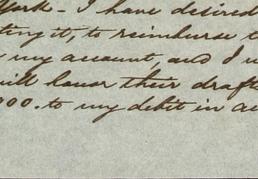 York - I have desired
ting it, to reimburse t
my account, and I w
will honor their drafts
000. to my debit in ac